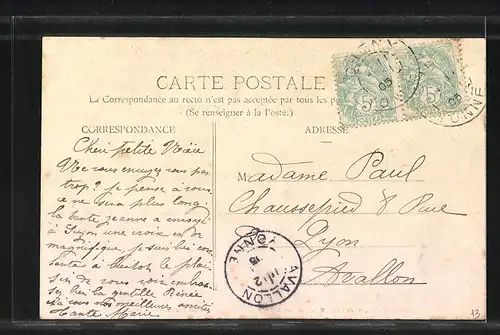 CARTE POSTALE
La Correspondance au recto n'est pas acceptée par tous les
(Se renseigner à la Poste.)
CORRESPONDANCE
ADRESSE
Chère petite Nièce
Ne vous ennuyez vous pas
trop? Je pense à vous
ce ne sera plus long-
la tante Jeanne a envoyé
à une croix est de
magnifique, je suis bien con-
tente à bientôt le plai-
sir de vous voir embras-
sez bien la gentille Renée
à vous nos meilleures amitiés
Tante Marie
Madame Paul
Chaussepied 8 Rue
Lyon
Avallon
AVALLON
YONNE
5
5
13